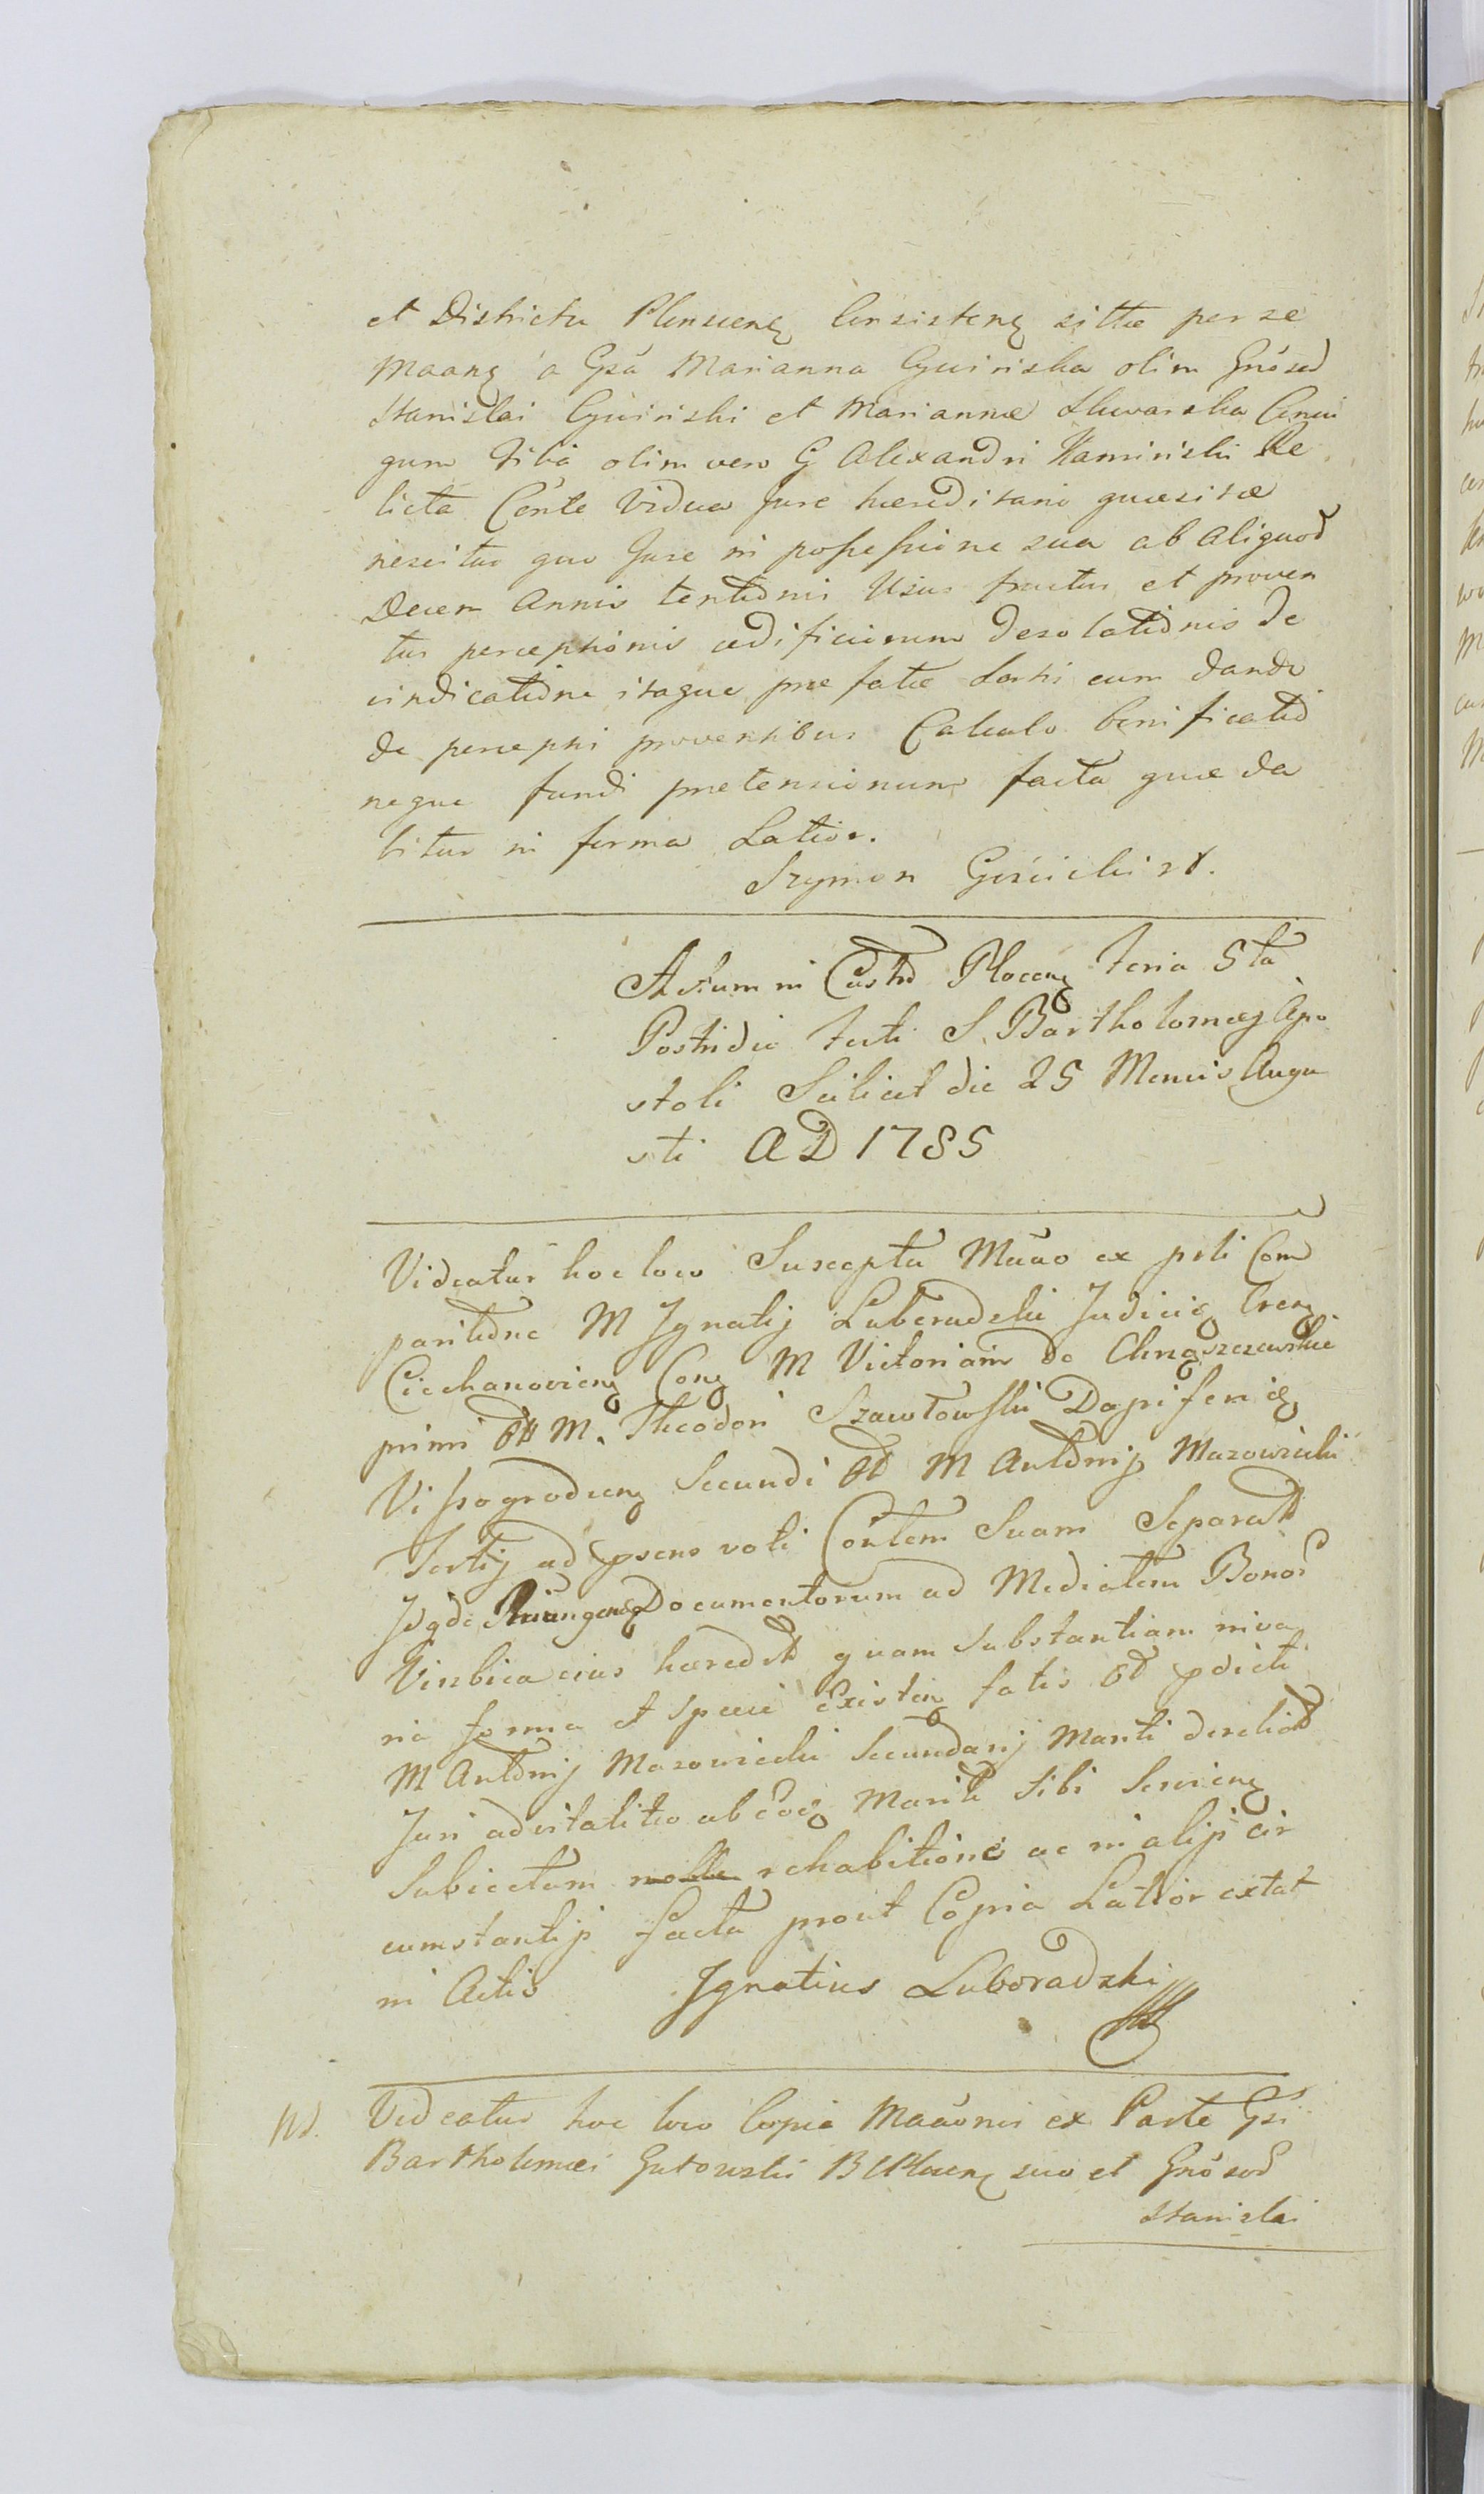 et Districtu Plonscen Consisten sitae per se
Maan a Gsa Marianna Cywinska olim Gnosod
Stanislai Cywinski et Mariannae Skwarska Conju
gum filia olim vero G Alexandri Kaminski Re
licta Conte Vidua Jure haereditario quaesitae
nescitur quo Jure in possessione sua ab aliquod
Decem Annis tentionis Usus fructus et proven
tus perceptionis aedificiorum desolationis de
vindicatione itaque praefatae Sorti cum dando
de percepti proventibus Calculo bonificatio
neque fundi pretensionum facta quae da
bitur in forma Latior.
Szymon Gościcki
Actum in Castro Plocen feria 5ta
Postridie festi S. Bartholomaej Apo
stoli Scilicet die 25 Mensis Augu
sti AD 1785
Videatur hoc loco Suscepta Maao ex psti Com
paritione M Ignatij Luboradzki Judicis
Ciechanovien Con M Victoriam de Chrząszczewskie
primi Ott M. Theodori Szawłowski Dapiferi
Vissogrodien Secundi Ott M Antonij Mazowiecki
Tertij ad psens voti Contem Suam Separat
Documentorum ad Medietatem Bonor
haeredit quam Substantiam in va
ria forma et specie Existen fatis Ott pdicti
M Antonij Mazowiecki Secundarij Mariti derelict
Juri advitalitio ab Eoc Marito Sibi Servien
Subiectam rehabitione ac in alijs cir
cumstantijs facta prout Copia Latior extat
in Actis Ignatius Luboradzki
Nd. Videatur hoc loco Copia Maaonis ex Parte Gsi
Bartholomaei Gutowski BCPlocen suo et Gnosod
Stanislai